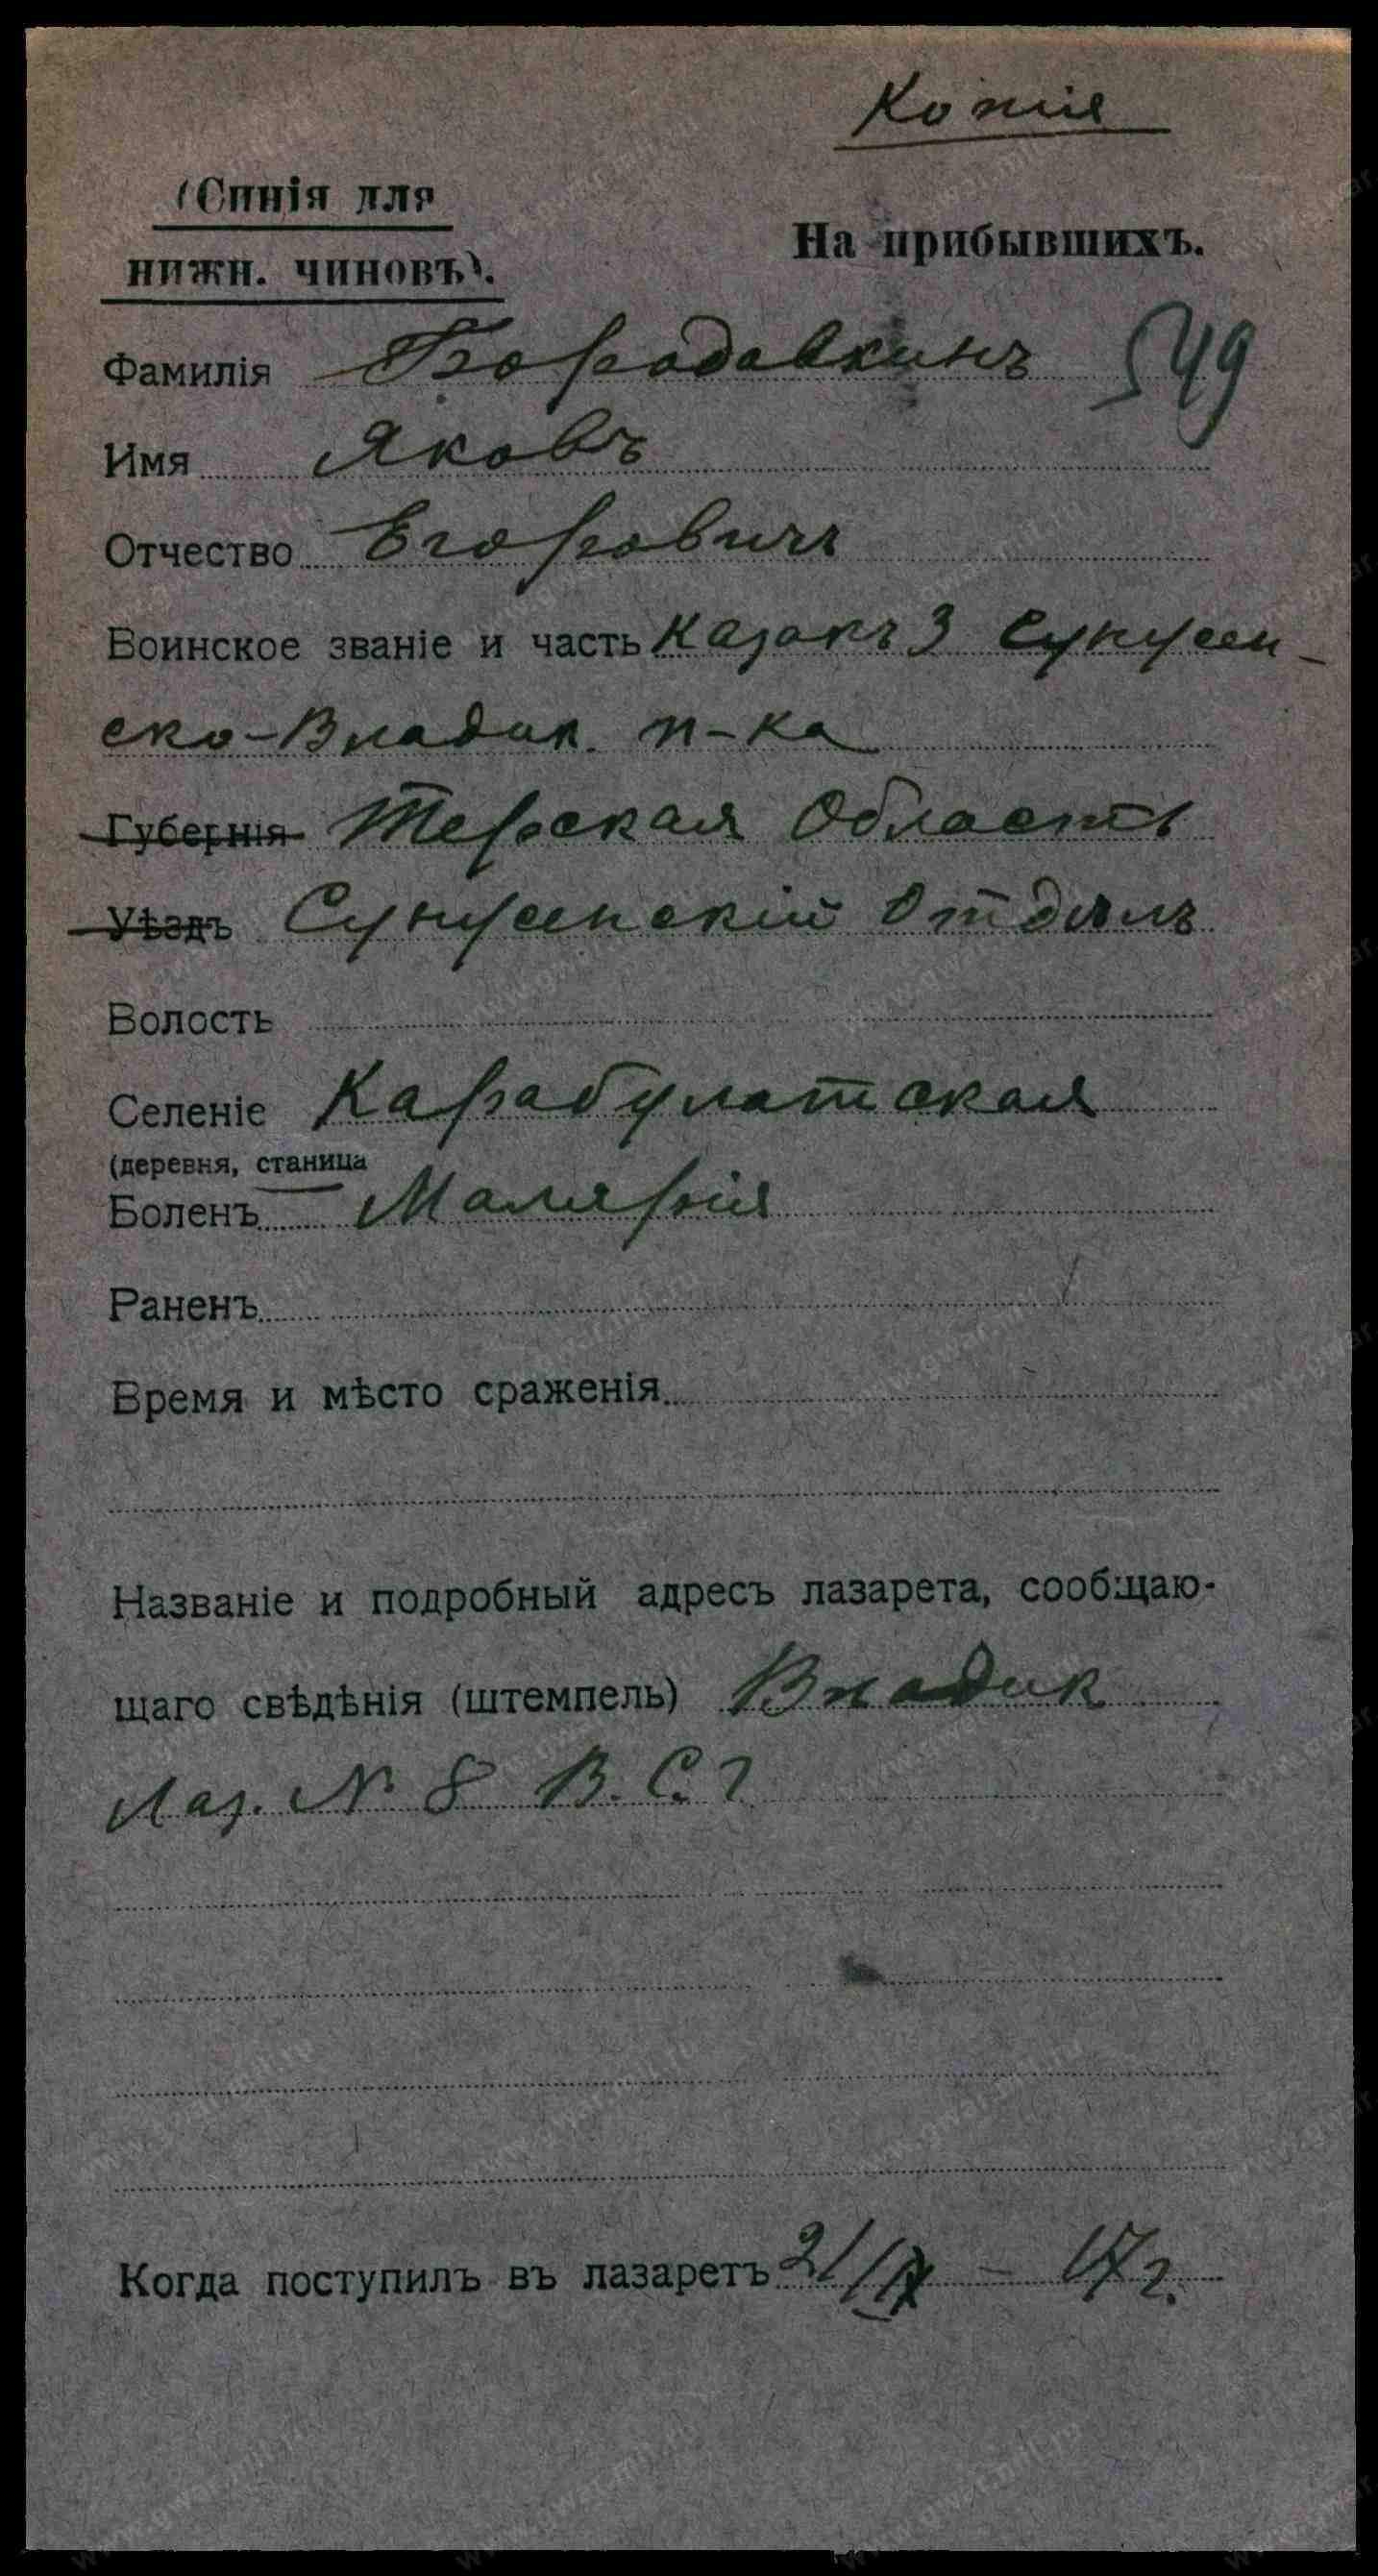 Копія
(Синія для
нижн. чиновъ).
На прибывшихъ.
Фамилія Бородавкинъ 549
Имя Яковъ
Отчество Егоровичъ
Воинское званіе и часть Казакъ 3 Сунжен-
ско-Владик. п-ка
Губернія Терская Область
Уѣздъ Сунженскій Отдѣлъ
Волость
Селеніе Карабулатская
(деревня, станица
Боленъ Малярія
Раненъ
Время и мѣсто сраженія
Названіе и подробный адресъ лазарета, сообщаю-
щаго свѣдѣнія (штемпель) Владик
Лаз. № 8 В. С. Г.
Когда поступилъ въ лазаретъ 21/IX – 17 г.